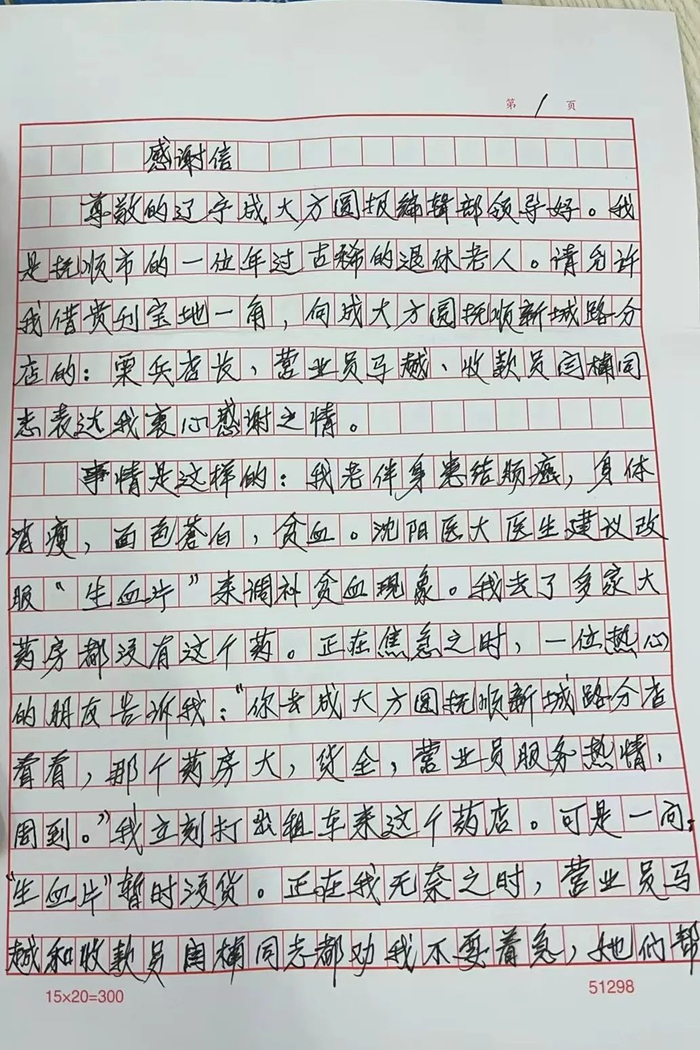 第 1 页
感谢信
尊敬的辽宁成大方圆报编辑部领导好。我
是抚顺市的一位年过古稀的退休老人。请允许
我借贵刊宝地一角，向成大方圆抚顺新城路分
店的：栗兵店长、营业员马越、收款员闫楠同
志表达我衷心感谢之情。
事情是这样的：我老伴身患结肠癌，身体
消瘦，面色苍白，贫血。沈阳医大医生建议改
服“生血片”来调补贫血现象。我去了多家大
药房都没有这个药。正在焦急之时，一位热心
的朋友告诉我：“你去成大方圆抚顺新城路分店
看看，那个药房大，货全，营业员服务热情，
周到。”我立刻打出租车来这个药店。可是一问，
“生血片”暂时没货。正在我无奈之时，营业员马
越和收款员闫楠同志都劝我不要着急，她们帮
15×20=300
51298